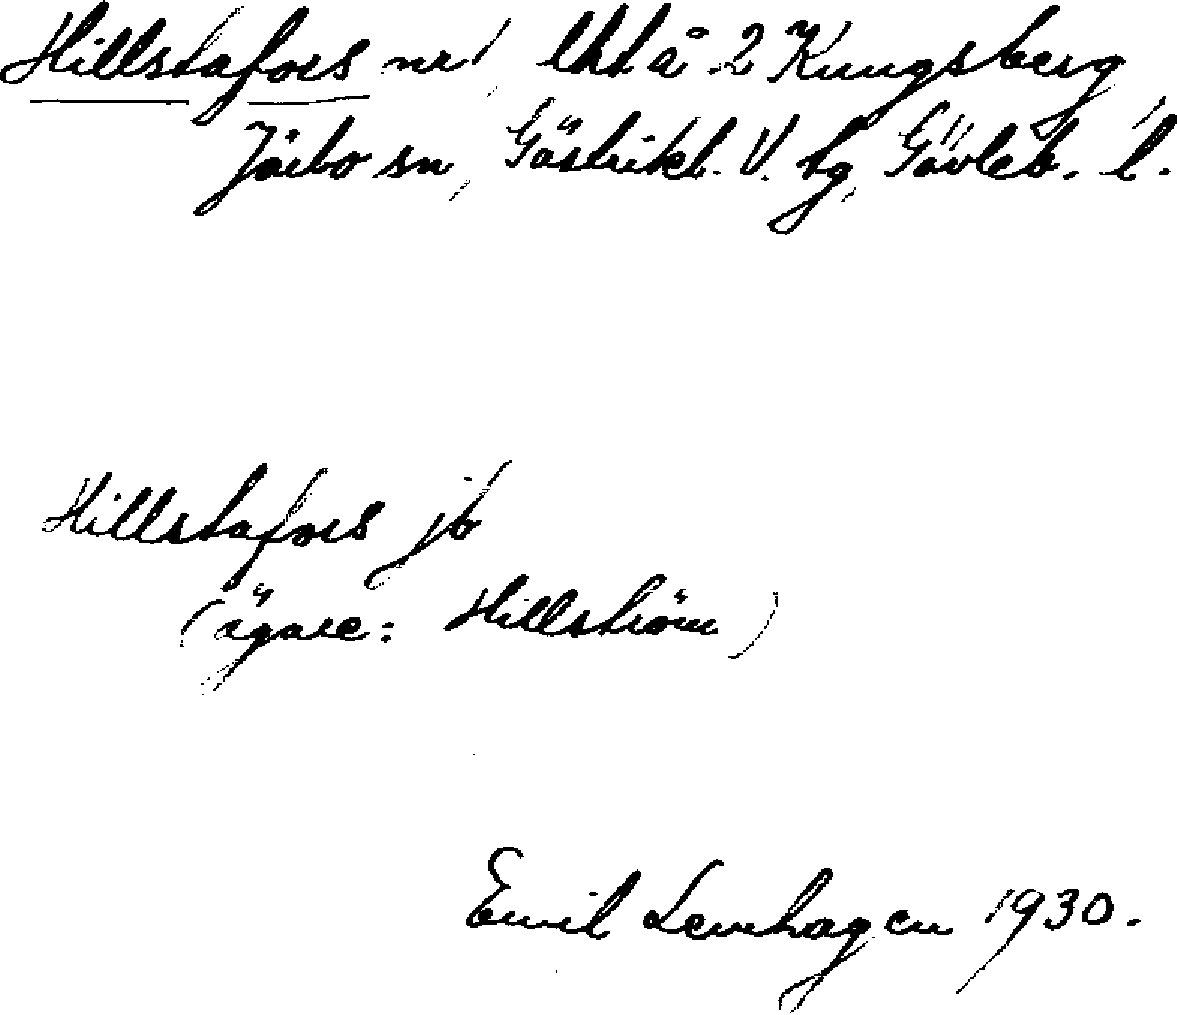 Hillstafors nr 1, lht å 2 Kungsberg,
Järbo sn, Gästrikl. V. tg, Gävleb. l.
Hillstafors jb
(ägare: Hillström)
Emil Lenhagen 1930.